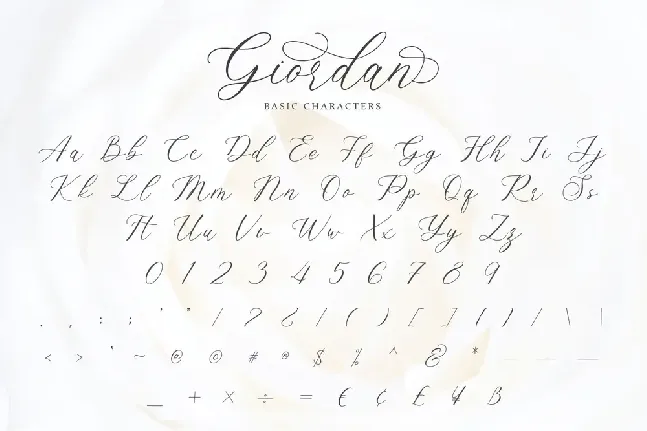 Giordan
BASIC CHARACTERS
Aa Bb Cc Dd Ee Ff Gg Hh Ii Jj
Kk Ll Mm Nn Oo Pp Qq Rr Ss
Tt Uu Vv Ww Xx Yy Zz
0 1 2 3 4 5 6 7 8 9
. , : ; ' " ! ? ¿ / ( ) [ ] { } / \ |
< > * ~ @ © # ® $ % ^ & * - – —
_ + × ÷ = € ¢ £ ¥ ß